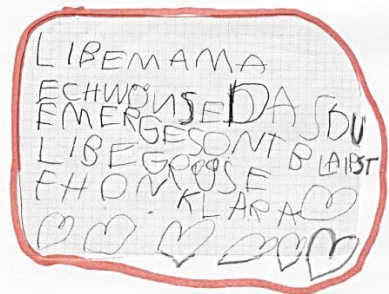 LIBEMAMA
ECHWÜNSEDASDU
EMERGESONTBLAIBST
LIBEGRÜSE
FHON
KLARA